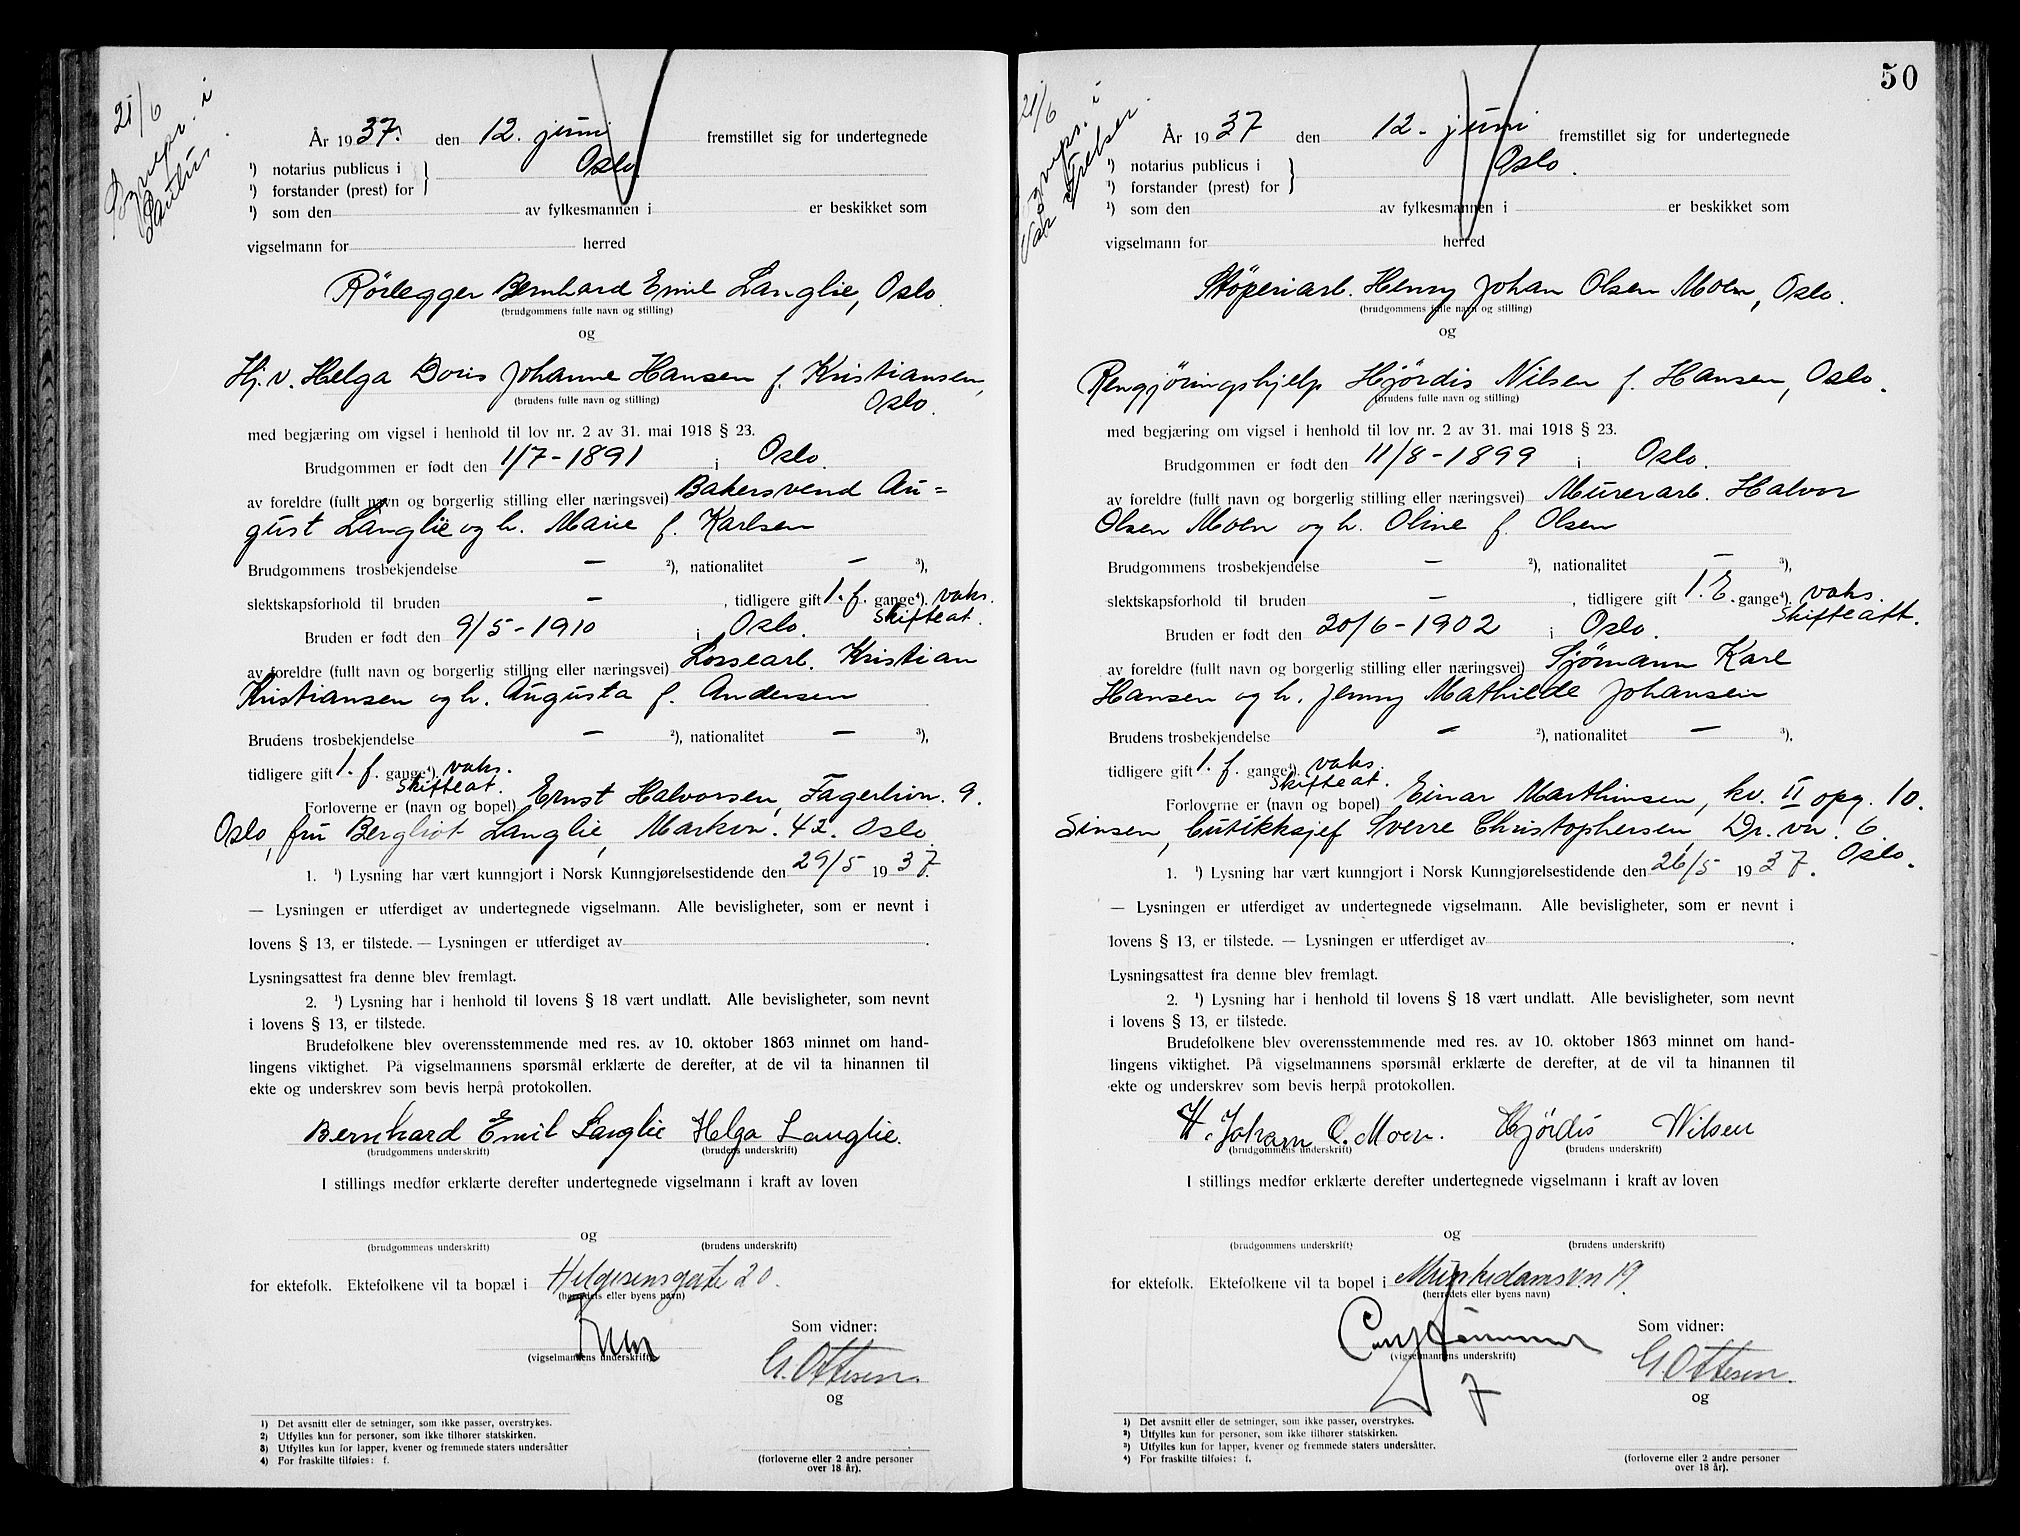 21/6
i
Paulus.
År 1937. den 12. juni fremstillet sig for undertegnede
¹) notarius publicus i
¹) forstander (prest) for } Oslo.
¹) som den av fylkesmannen i er beskikket som
vigselmann for herred
Rørlegger Bernhard Emil Langlie, Oslo.
(brudgommens fulle navn og stilling)
og
Hj.v. Helga Doris Johanne Hansen f. Kristiansen,
(brudens fulle navn og stilling) Oslo.
med begjæring om vigsel i henhold til lov nr. 2 av 31. mai 1918 § 23.
Brudgommen er født den 1/7-1891 i Oslo.
av foreldre (fullt navn og borgerlig stilling eller næringsvei) Bakersvend Au=
gust Langlie og h. Marie f. Karlsen
Brudgommens trosbekjendelse — ²), nationalitet — ³),
slektskapsforhold til bruden — , tidligere gift 1. f. gange⁴). vaks.
Skifteat.
Bruden er født den 9/5-1910 i Oslo.
av foreldre (fullt navn og borgerlig stilling eller næringsvei) Lossearb. Kristian
Kristiansen og h. Augusta f. Andersen
Brudens trosbekjendelse — ²), nationalitet — ³),
tidligere gift 1. f. gange⁴). vaks.
Skifteat.
Forloverne er (navn og bopel) Ernst Halvorsen, Fagerlivn. 9.
Oslo, fru Bergliot Langlie, Markvn. 42. Oslo
1. ¹) Lysning har vært kunngjort i Norsk Kunngjørelsestidende den 29/5 1937.
— Lysningen er utferdiget av undertegnede vigselmann. Alle bevisligheter, som er nevnt i
lovens § 13, er tilstede. — Lysningen er utferdiget av .
Lysningsattest fra denne blev fremlagt.
2. ¹) Lysning har i henhold til lovens § 18 vært undlatt. Alle bevisligheter, som nevnt
i lovens § 13, er tilstede.
Brudefolkene blev overensstemmende med res. av 10. oktober 1863 minnet om hand-
lingens viktighet. På vigselmannens spørsmål erklærte de derefter, at de vil ta hinannen til
ekte og underskrev som bevis herpå protokollen.
Bernhard Emil Langlie Helga Langlie.
(brudgommens underskrift) (brudens underskrift)
I stillings medfør erklærte derefter undertegnede vigselmann i kraft av loven
og
(brudgommens underskrift) (brudens underskrift)
for ektefolk. Ektefolkene vil ta bopæl i Helgesensgate 20.
(herredets eller byens navn)
Som vidner:
(vigselmannens underskrift)
G. Ottesen.
og
¹) Det avsnitt eller de setninger, som ikke passer, overstrykes.
²) Utfylles kun for personer, som ikke tilhører statskirken.
³) Utfylles kun for lapper, kvener og fremmede staters undersåtter
⁴) For fraskilte tilføies: f.
(forloverne eller 2 andre personer
over 18 år).
50
21/6
i
Vår Frelser.
År 1937 den 12. juni fremstillet sig for undertegnede
¹) notarius publicus i
¹) forstander (prest) for } Oslo.
¹) som den av fylkesmannen i er beskikket som
vigselmann for herred
Støperiarb. Henry Johan Olsen Moen, Oslo.
(brudgommens fulle navn og stilling)
og
Rengjøringshjelp Hjørdis Nilsen f. Hansen, Oslo.
(brudens fulle navn og stilling)
med begjæring om vigsel i henhold til lov nr. 2 av 31. mai 1918 § 23.
Brudgommen er født den 11/8-1899 i Oslo.
av foreldre (fullt navn og borgerlig stilling eller næringsvei) Murerarb. Halvor
Olsen Moen og h. Oline f. Olsen
Brudgommens trosbekjendelse — ²), nationalitet — ³),
slektskapsforhold til bruden — , tidligere gift 1. E. gange⁴). vaks.
Skifteatt.
Bruden er født den 20/6-1902 i Oslo.
av foreldre (fullt navn og borgerlig stilling eller næringsvei) Sjømann Karl
Hansen og h. Jenny Mathilde Johansen
Brudens trosbekjendelse — ²), nationalitet — ³),
tidligere gift 1. f. gange⁴). vaks.
Skifteat.
Forloverne er (navn og bopel) Einar Marthinsen, kv. II opg. 10.
Sinsen, butikksjef Sverre Christophersen, Dr. vn. 6.
Oslo.
1. ¹) Lysning har vært kunngjort i Norsk Kunngjørelsestidende den 26/5 1937.
— Lysningen er utferdiget av undertegnede vigselmann. Alle bevisligheter, som er nevnt i
lovens § 13, er tilstede. — Lysningen er utferdiget av .
Lysningsattest fra denne blev fremlagt.
2. ¹) Lysning har i henhold til lovens § 18 vært undlatt. Alle bevisligheter, som nevnt
i lovens § 13, er tilstede.
Brudefolkene blev overensstemmende med res. av 10. oktober 1863 minnet om hand-
lingens viktighet. På vigselmannens spørsmål erklærte de derefter, at de vil ta hinannen til
ekte og underskrev som bevis herpå protokollen.
H. Johan O. Moen. Hjördis Nilsen
(brudgommens underskrift) (brudens underskrift)
I stillings medfør erklærte derefter undertegnede vigselmann i kraft av loven
og
(brudgommens underskrift) (brudens underskrift)
for ektefolk. Ektefolkene vil ta bopel i Munkedamsvn 19.
(herredets eller byens navn)
Som vidner:
(vigselmannens underskrift)
G. Ottesen.
og
¹) Det avsnitt eller de setninger, som ikke passer, overstrykes.
²) Utfylles kun for personer, som ikke tilhører statskirken.
³) Utfylles kun for lapper, kvener og fremmede staters undersåtter.
⁴) For fraskilte tilføies: f.
(forloverne eller 2 andre personer
over 18 år).